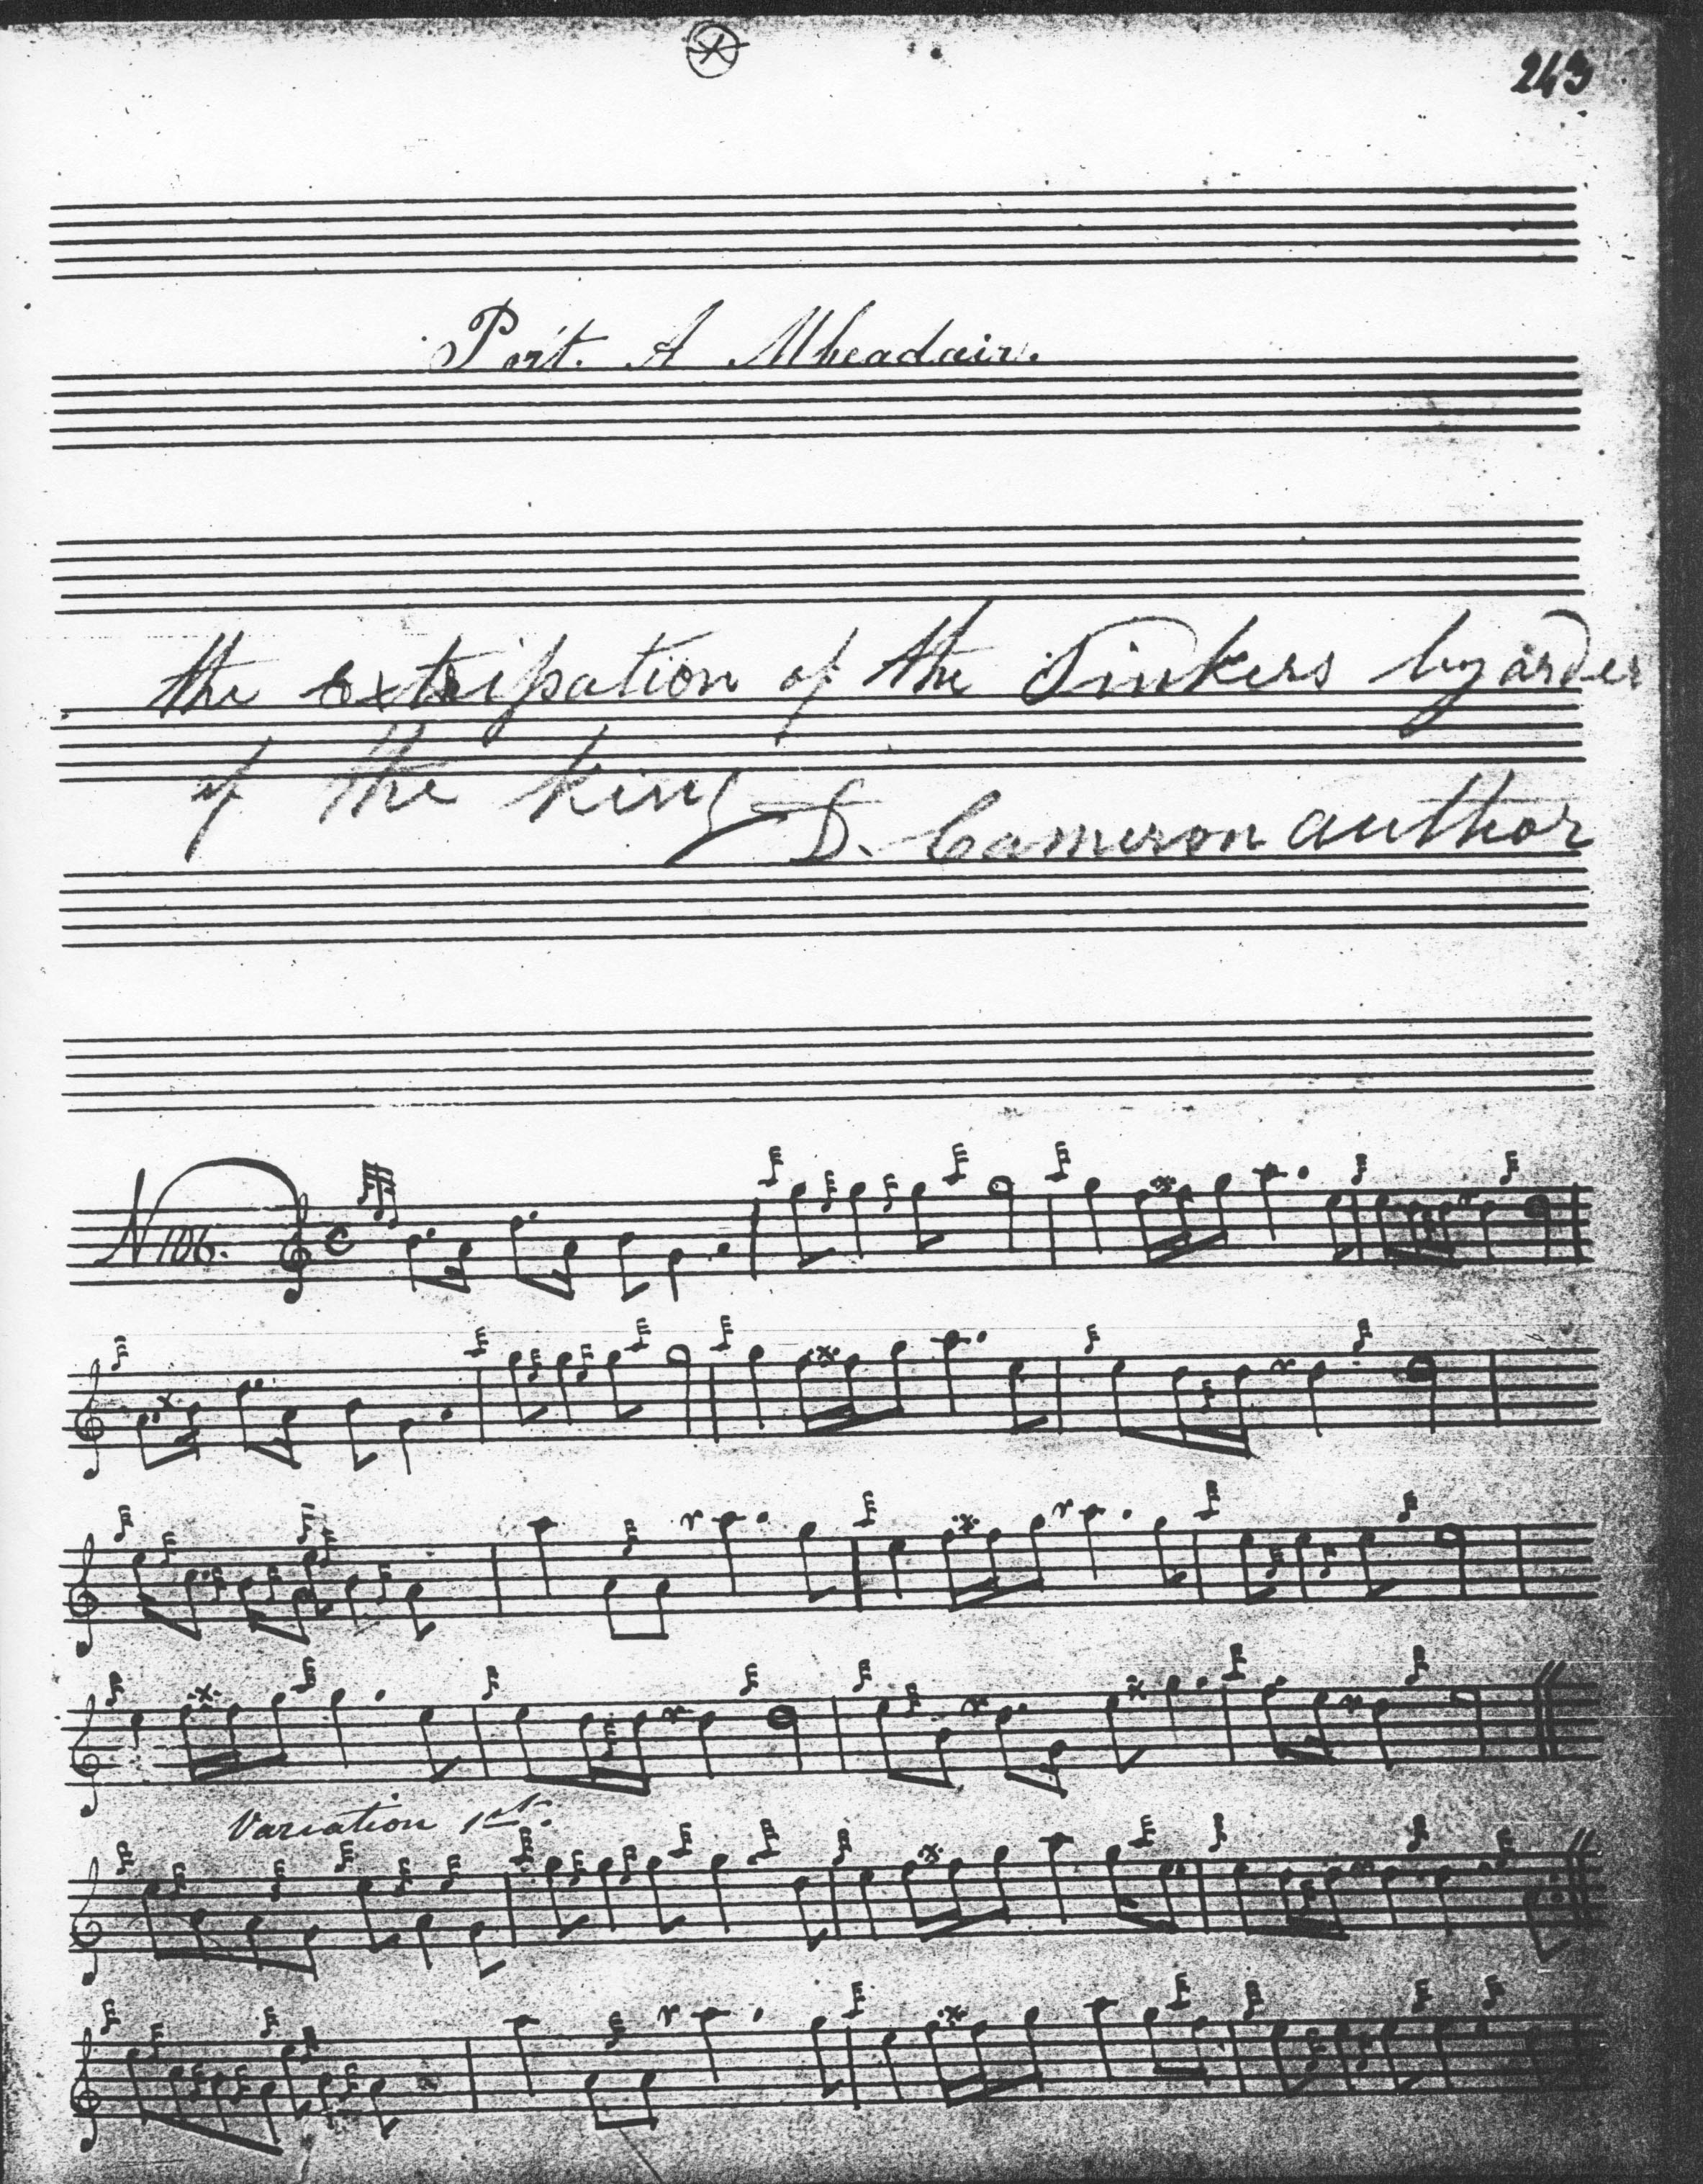 243
Port. A Mheadair.
the extripation of the Tinkers by order
of the king
D. Cameron author
N 106.
Variation 1st.